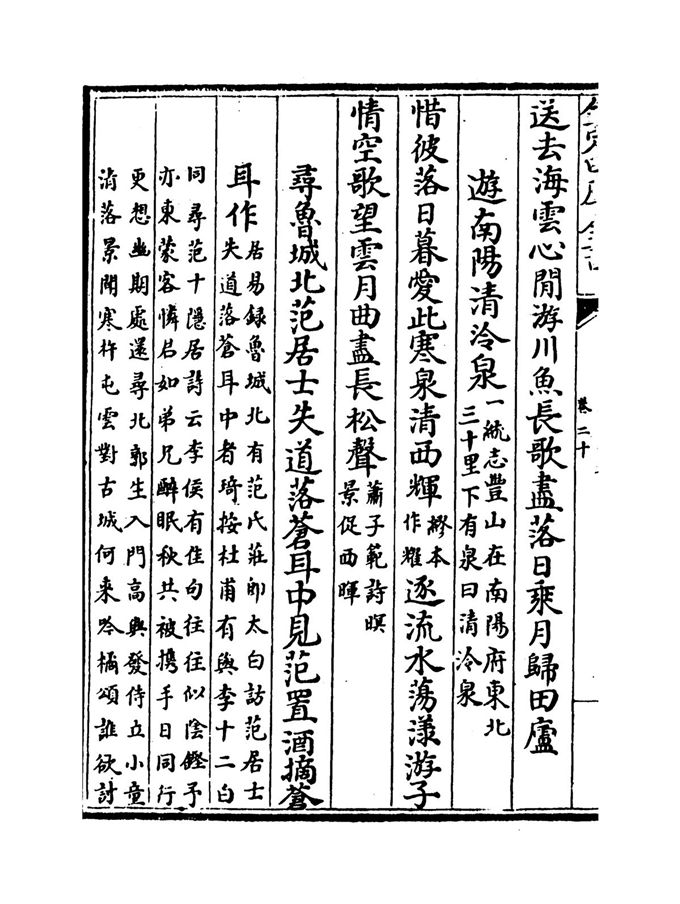 欽定四庫全書
卷二十
送去海雲心閒游川魚長歌盡落日乘月歸田廬
遊南陽清泠泉一統志豐山在南陽府東北三十里下有泉曰清泠泉
惜彼落日暮愛此寒泉清西輝繆本作耀逐流水蕩漾游子
情空歌望雲月曲盡長松聲蕭子範詩暝景促西暉
尋魯城北范居士失道落蒼耳中見范置酒摘蒼
耳作居易録魯城北有范氏莊即太白訪范居士失道落蒼耳中者琦按杜甫有與李十二白
同尋范十隱居詩云李侯有佳句往往似陰鏗予亦東蒙客憐君如弟兄醉眠秋共被携手日同行
更想幽期處還尋北郭生入門高興發侍立小童清落景聞寒杵屯雲對古城何來吟橘頌誰欲討